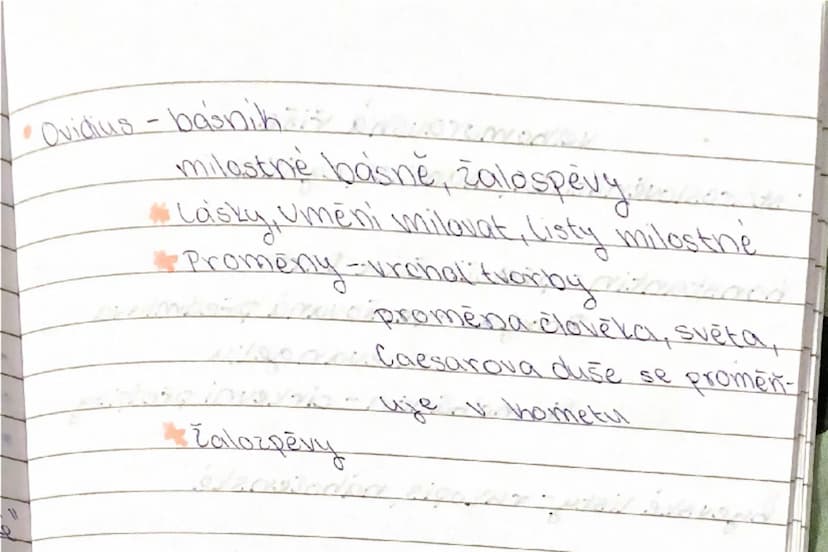 Ovidius - básník
milostné básně, žalospěvy
Lásky, Umění milovat, listy milostné
Proměny - vrchol tvorby
proměna člověka, světa,
Caesarova duše se proměň-
uje v kometu
Žalozpěvy